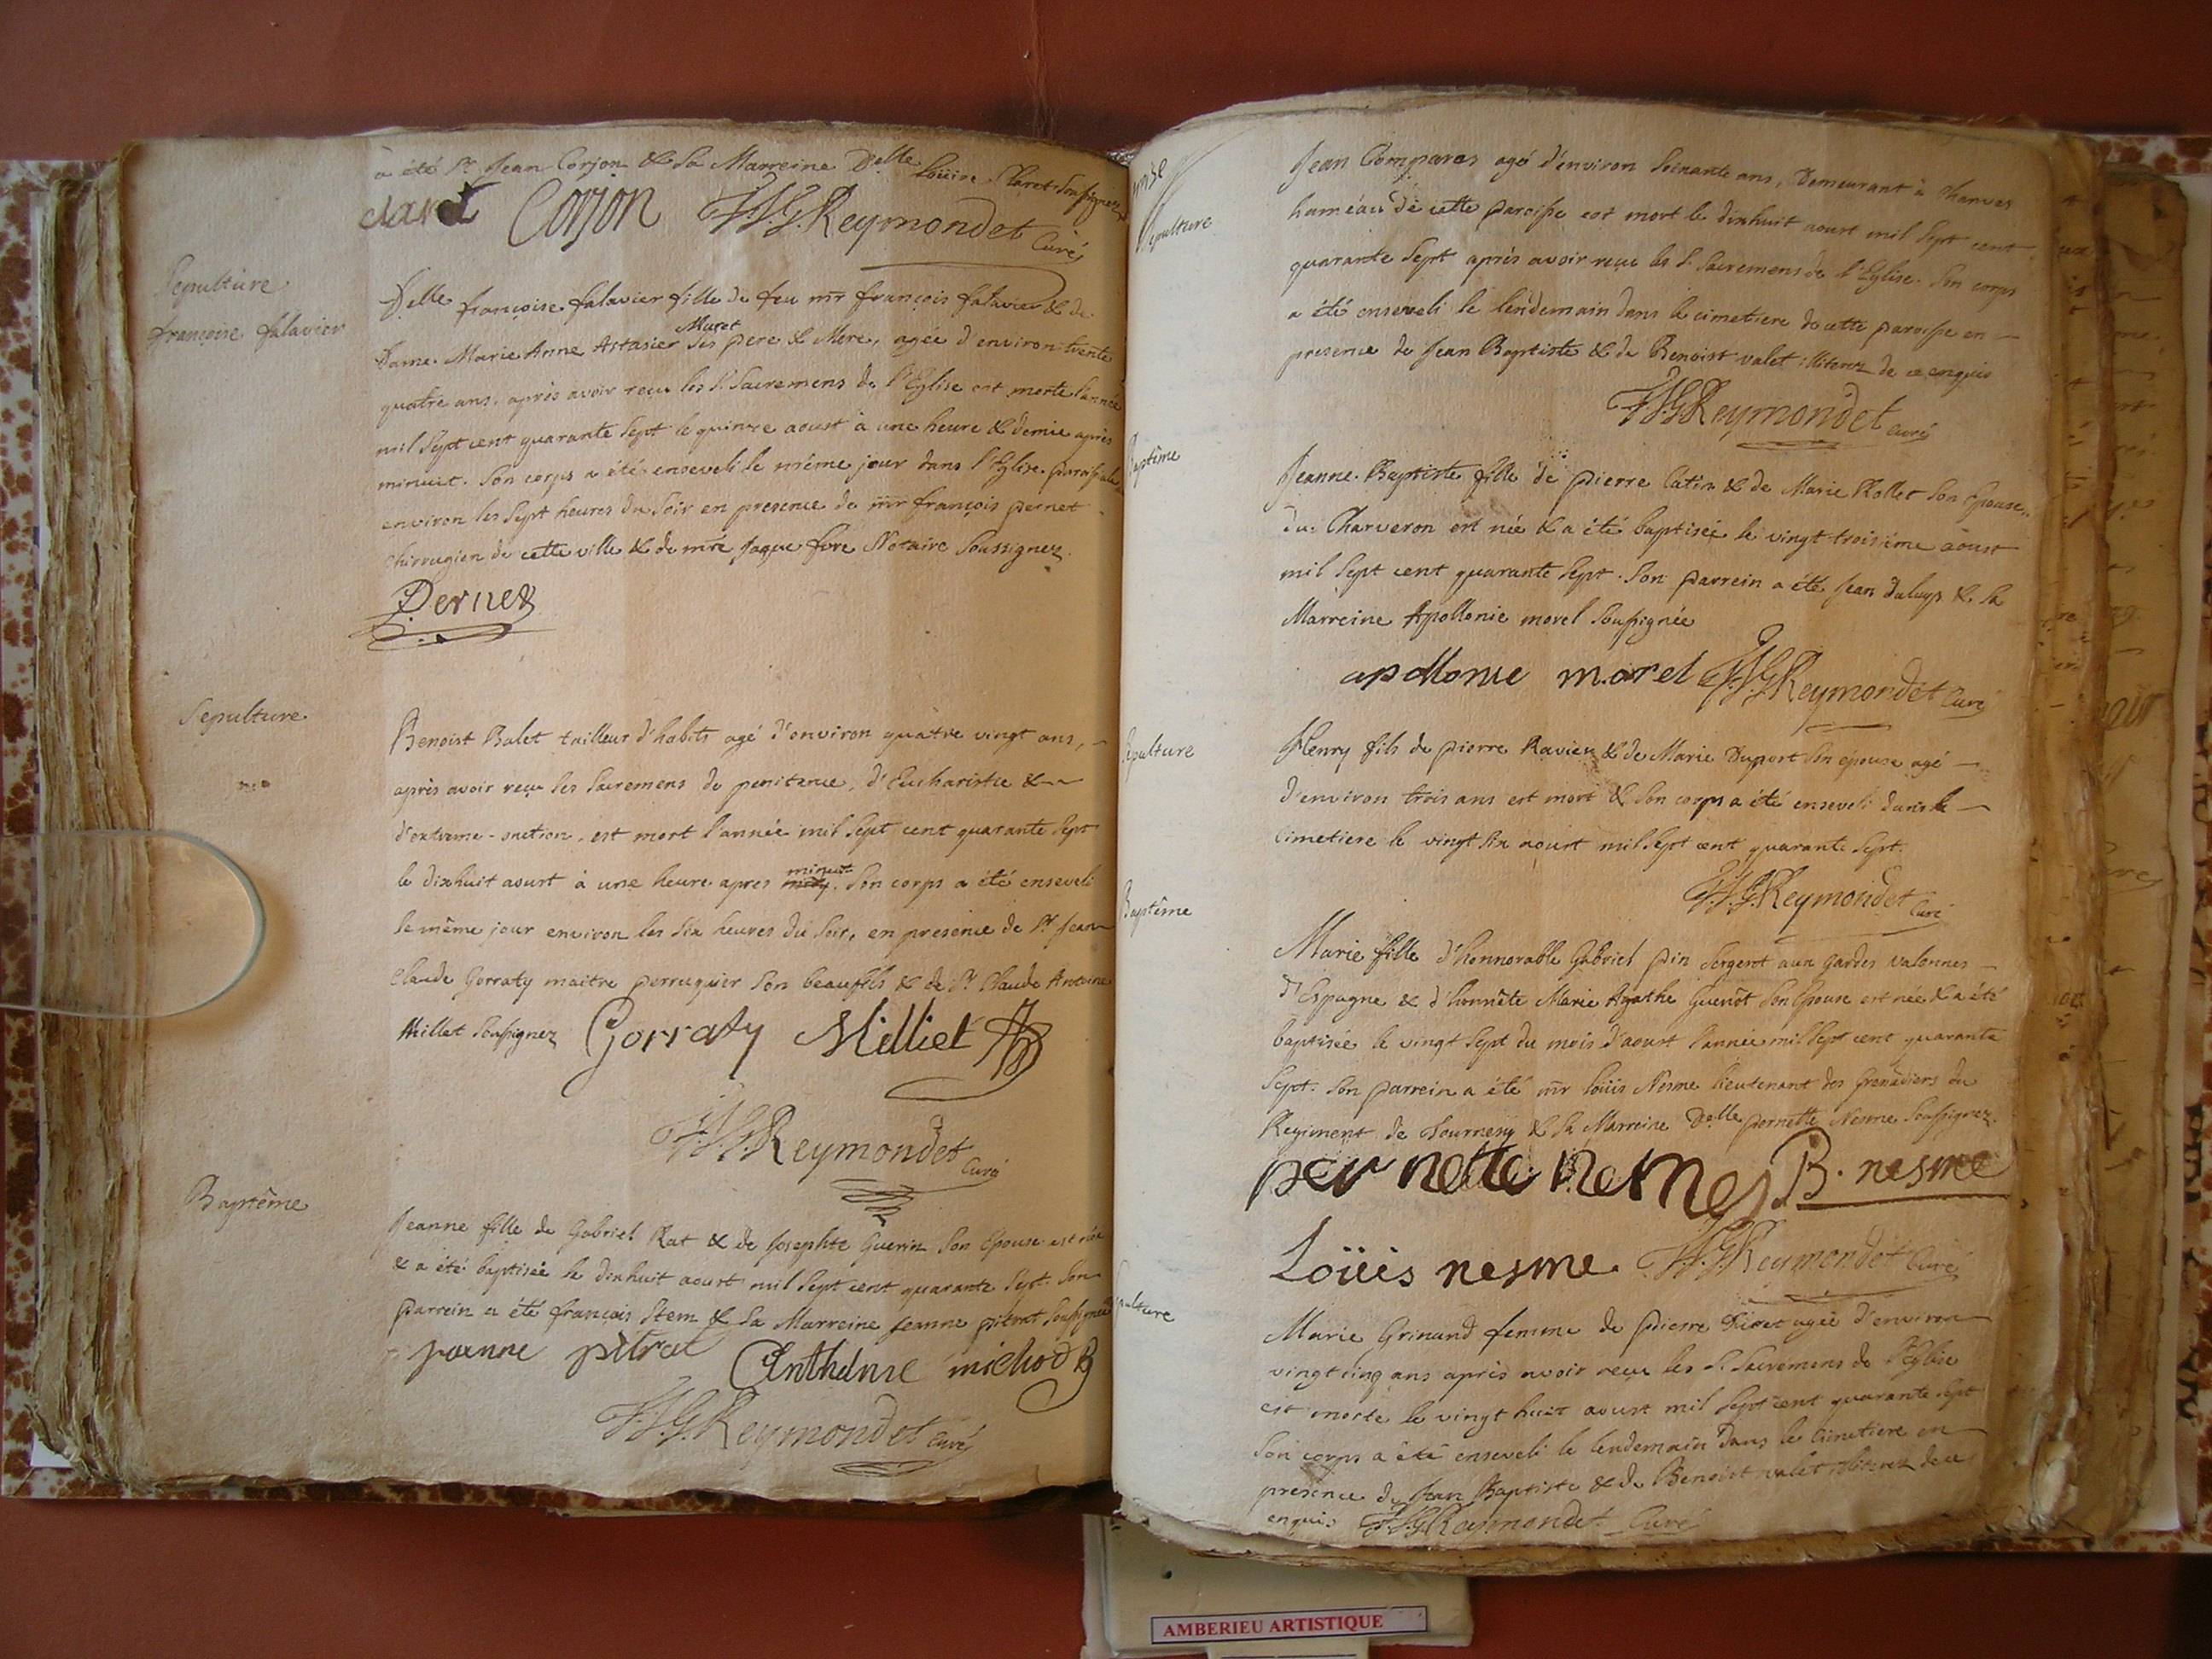 a été Sr Jean Corjon & sa Marreine Delle Loüise Claret soussignez
claret Corjon Reymondet Curé
Sepulture
francoise falavier
Delle françoise falavier fille de feu mr françois falavier & de
Dame Marie Anne Astasier Muret ses pere & Mere, agée d'environ trente
quatre ans, après avoir reçu les S. Sacremens de l'Eglise est morte l'année
mil sept cent quarante sept le quinze aoust à une heure & demie après
minuit. Son corps a été enseveli le même jour dans l'Eglise paroissiale
environ les sept heures du soir en presence de mr françois pernet
chirrugien de cette ville & de mre Jaque fvre Notaire soussignez.
Pernet
Sepulture
Benoist Balet tailleur d'habits agé d'environ quatre vingt ans,
après avoir reçu les sacremens de penitence, d'Eucharistie &
d'extreme-onction, est mort l'année mil sept cent quarante sept
le dixhuit aoust à une heure apres minuit. Son corps a été enseveli
le même jour environ les six heures du soir, en presence de Sr Jean
Claude Gorraty maitre perruquier son beaufils & de Sr Claude Antoine
Millet soussignez Gorraty Milliet
Reymondet Curé
Baptême
Jeanne fille de Gabriel Rat & de Josephte Guerin son Epouse est née
& a été baptisée le dixhuit aoust mil sept cent quarante sept. Son
parrein a été françois Stem & sa Marreine Jeanne pitrat soussignée
joanne pitrat Anthelme michod
Reymondet Curé
Sepulture
Jean Comparas agé d'environ soixante ans, Demeurant à
haméau de cette paroisse est mort le dixhuit aoust mil sept cent
quarante sept après avoir reçu les S. Sacremens de l'Eglise. Son corps
a été enseveli le lendemain dans le cimetiere de cette paroisse en
presence de Jean Baptiste & de Benoist valet illiterez de ce enquis
Reymondet Curé
Baptême
Jeanne Baptiste fille de pierre Catin & de Marie Rollet son Epouse
du Charveron est née & a été baptisée le vingt troisiéme aoust
mil sept cent quarante sept. Son parrein a été Jean & sa
Marreine Apollonie morel soussignée
apollonie morel Reymondet Curé
Sepulture
Henry fils de pierre Ravier & de Marie Duport son epouse agé
d'environ trois ans est mort & son corps a été enseveli dans le
cimetiere le vingt six aoust mil sept cent quarante sept.
Reymondet Curé
Baptême
Marie fille d'honnorable Gabriel pin sergent aux gardes valonnes
d'Espagne & d'honnête Marie Agathe Guenot son Epouse est née & a été
baptisée le vingt sept du mois d'aoust l'année mil sept cent quarante
sept. Son parrein a été mr loüis Nesme lieutenant des Grenadiers du
Regiment de Tourneny & sa Marreine Delle pernette Nesme soussignez.
pernette nemes B. nesme
Loüis nesme Reymondet Curé
Sepulture
Marie Grinand femme de pierre agée d'environ
vingt cinq ans après avoir reçu les S. Sacremens de l'Eglise
est morte le vingt huit aoust mil sept cent quarante sept
Son corps a été enseveli le lendemain dans le cimetiere en
presence de Jean Baptiste & de Benoist valet illiterez de ce
enquis Reymondet Curé
AMBERIEU ARTISTIQUE